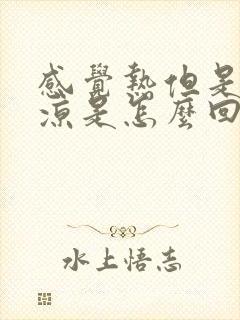 感覺熱但是
涼是怎麼回
水上悟志